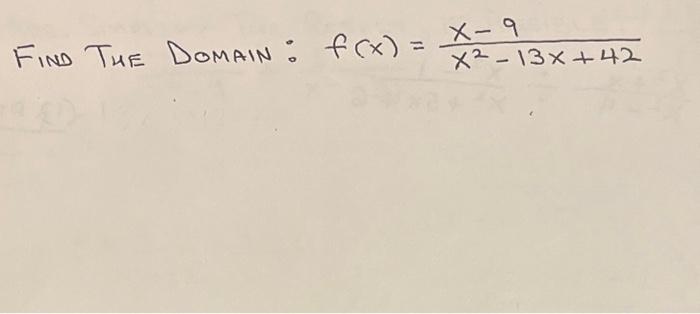 FIND THE DOMAIN: f(x) = x-9 / x²-13x+42